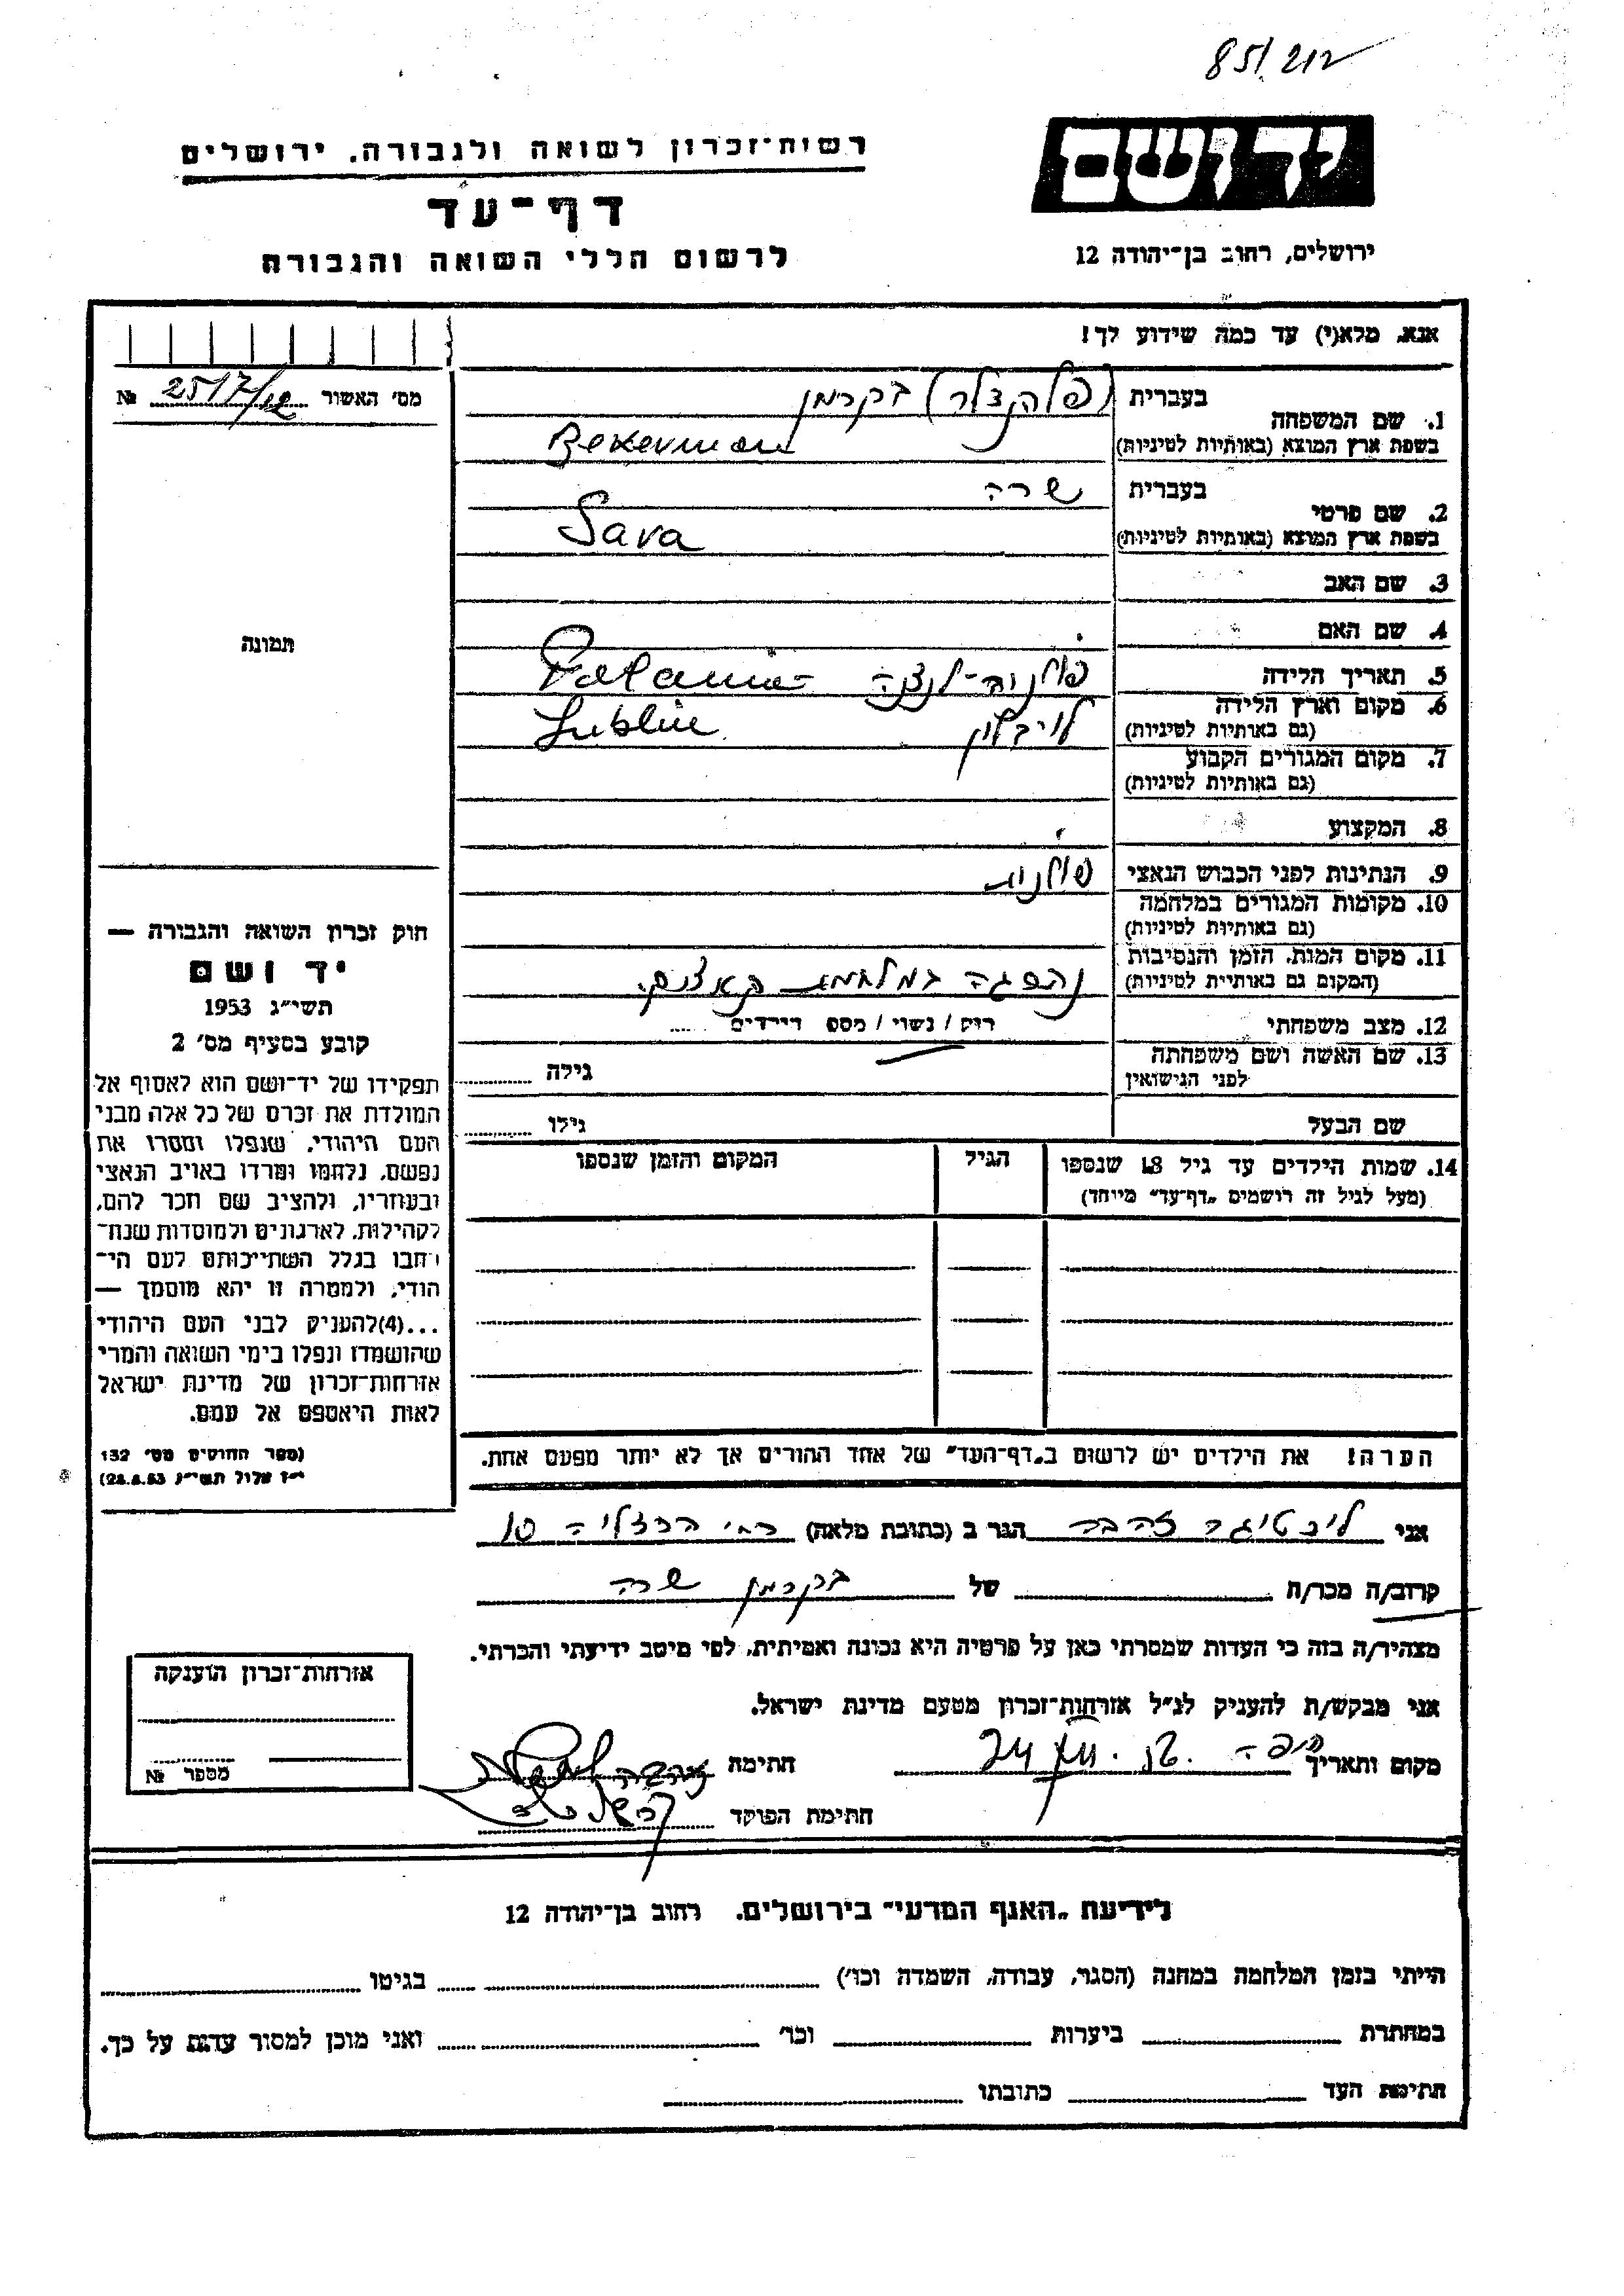 85/212
יד ושם
רשות-זכרון לשואה ולגבורה, ירושלים
דף-עד
לרשום חללי השואה והגבורה
ירושלים, רחוב בן-יהודה 12
אנא, מלא(י) עד כמה שידוע לך!
מס' האשור № 2517/12
1. שם המשפחה
בעברית בקרמן
בשפת ארץ המוצא (באותיות לטיניות) Bekerman
2. שם פרטי
בעברית שרה
בשפת ארץ המוצא (באותיות לטיניות) Sara
3. שם האב
4. שם האם
5. תאריך הלידה
6. מקום וארץ הלידה
(גם באותיות לטיניות)
לובלין Lublin
7. מקום המגורים הקבוע
(גם באותיות לטיניות)
8. המקצוע
9. הנתינות לפני הכבוש הנאצי פולנית
10. מקומות המגורים במלחמה
(גם באותיות לטיניות)
11. מקום המות, הזמן והנסיבות
(המקום גם באותיות לטיניות)
נהרגה במלחמת הנאצים.
12. מצב משפחתי רוק / נשוי / מספ הילדים .....
13. שם האשה ושם משפחתה
לפני הנישואין
גילה
שם הבעל גילו
14. שמות הילדים עד גיל 18 שנספו
(מעל לגיל זה רושמים "דף-עד" מיוחד)
הגיל
המקום והזמן שנספו
הערה! את הילדים יש לרשום ב"דף-העד" של אחד ההורים אך לא יותר מפעם אחת.
תמונה
חוק זכרון השואה והגבורה —
יד ושם
תשי"ג 1953
קובע בסעיף מס' 2
תפקידו של יד-ושם הוא לאסוף אל
המולדת את זכרם של כל אלה מבני
העם היהודי, שנפלו ומסרו את
נפשם, נלחמו ומרדו באויב הנאצי
ובעוזריו, ולהציב שם וזכר להם,
לקהילות, לארגונים ולמוסדות שנח-
רחבו בגלל השתייכותם לעם הי-
הודי, ולמטרה זו יהא מוסמך —
...(4)להעניק לבני העם היהודי
שהושמדו ונפלו בימי השואה והמרי
אזרחות-זכרון של מדינת ישראל
לאות היאספם אל עמם.
(ספר החוקים מס' 132
י"ז אלול תשי"ג 28.8.53)
אני זהבה הגר ב (כתובת מלאה) הרצליה 10
קרוב/ה מכר/ה של בקרמן שרה
מצהיר/ה בזה כי העדות שמסרתי כאן על פרטיה היא נכונה ואמיתית, לפי מיטב ידיעתי והכרתי.
אני מבקש/ת להעניק לנ"ל אזרחות-זכרון מטעם מדינת ישראל.
מקום ותאריך חיפה
חתימה
חתימת הפוקד
אזרחות-זכרון הוענקה
מספר №
לידיעת "האגף המדעי" בירושלים, רחוב בן-יהודה 12
הייתי בזמן המלחמה במחנה (הסגר, עבודה, השמדה וכו') בגיטו
במחתרת ביערות וכו' ואני מוכן למסור עדות על כך.
חתימת העד כתובתו